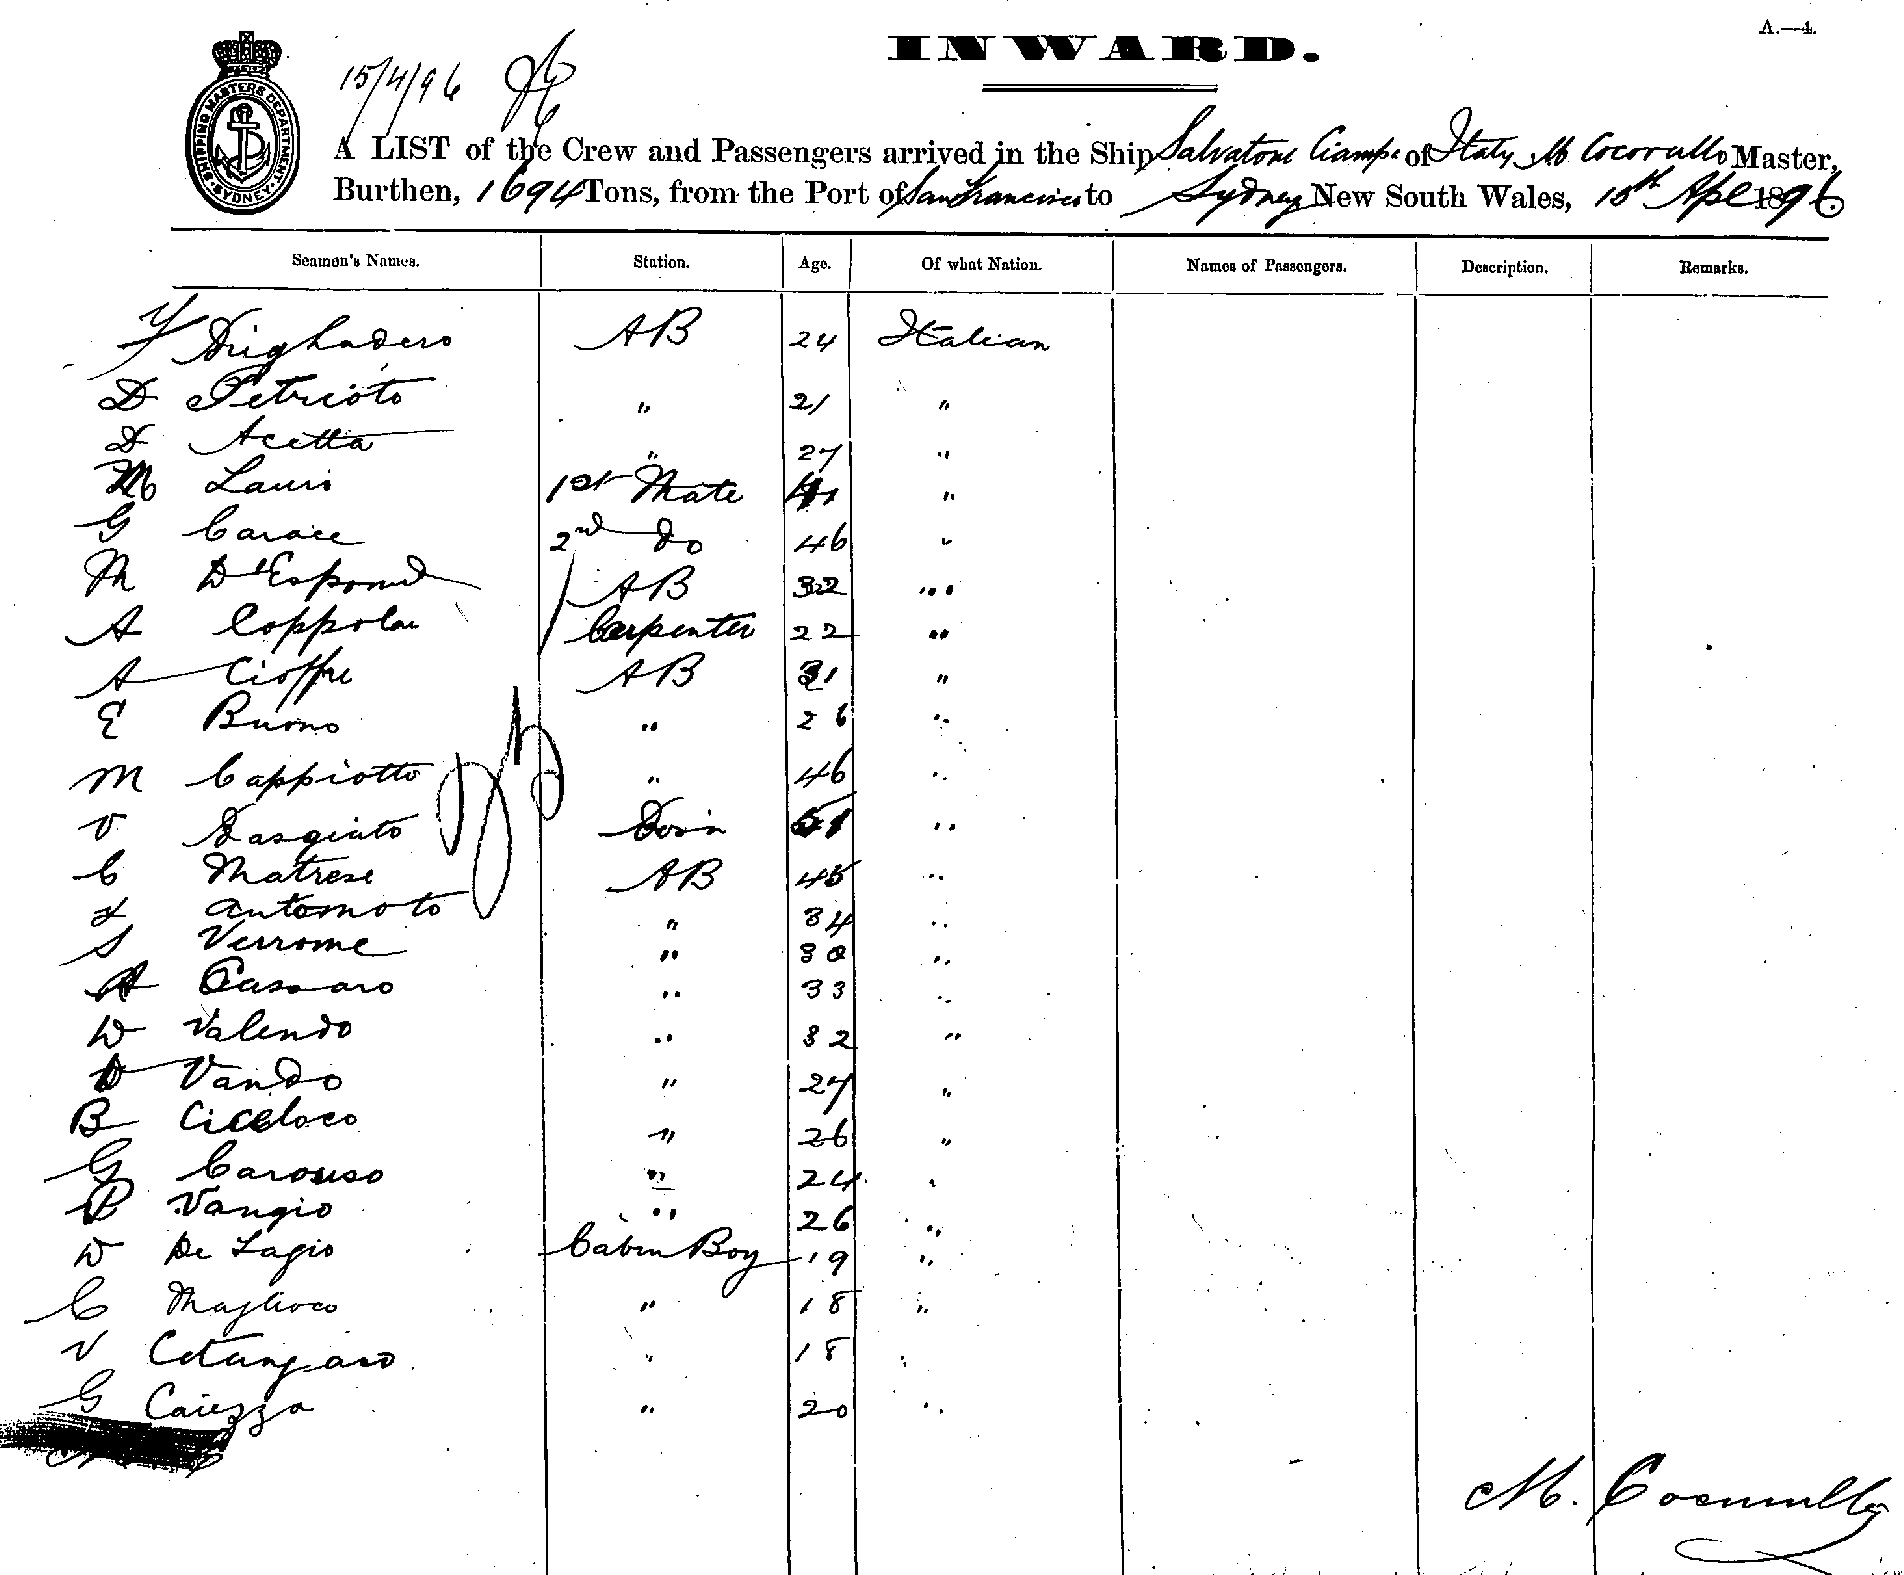 A.—4.
INWARD.
15/4/96
SHIPPING MASTERS DEPARTMENT SYDNEY
A LIST of the Crew and Passengers arrived in the Ship Salvatore Ciampa of Italy M Cocorullo Master,
Burthen, 1694 Tons, from the Port of San Francisco to Sydney New South Wales, 15th Apl 1896
Seamen's Names. Station. Age. Of what Nation. Names of Passengers. Description. Remarks.
AB 24 Italian
D Petrioto " 21 "
D Acetta " 27 "
M Lauro 1st Mate "
G Carace 2nd do 46 "
M D'Espond AB 32 "
A Coppola Carpenter 22 "
A Cioffre AB 31 "
E Buono " 26 "
M Cappiotto " 46 "
V Dasgiato Bos'n "
C Matrese AB 45 "
L Automoto " 34 "
S Verrome " 30 "
A Cassaro " 33 "
D Valendo " 32 "
D Vando " 27 "
B Ciceloco " 26 "
G Carouso " 24 "
P Vangio " 26 "
D De Lagio Cabin Boy 19 "
C Maglioco " 18 "
V " 18 "
G Caiezza " 20 "
M. Cocorullo